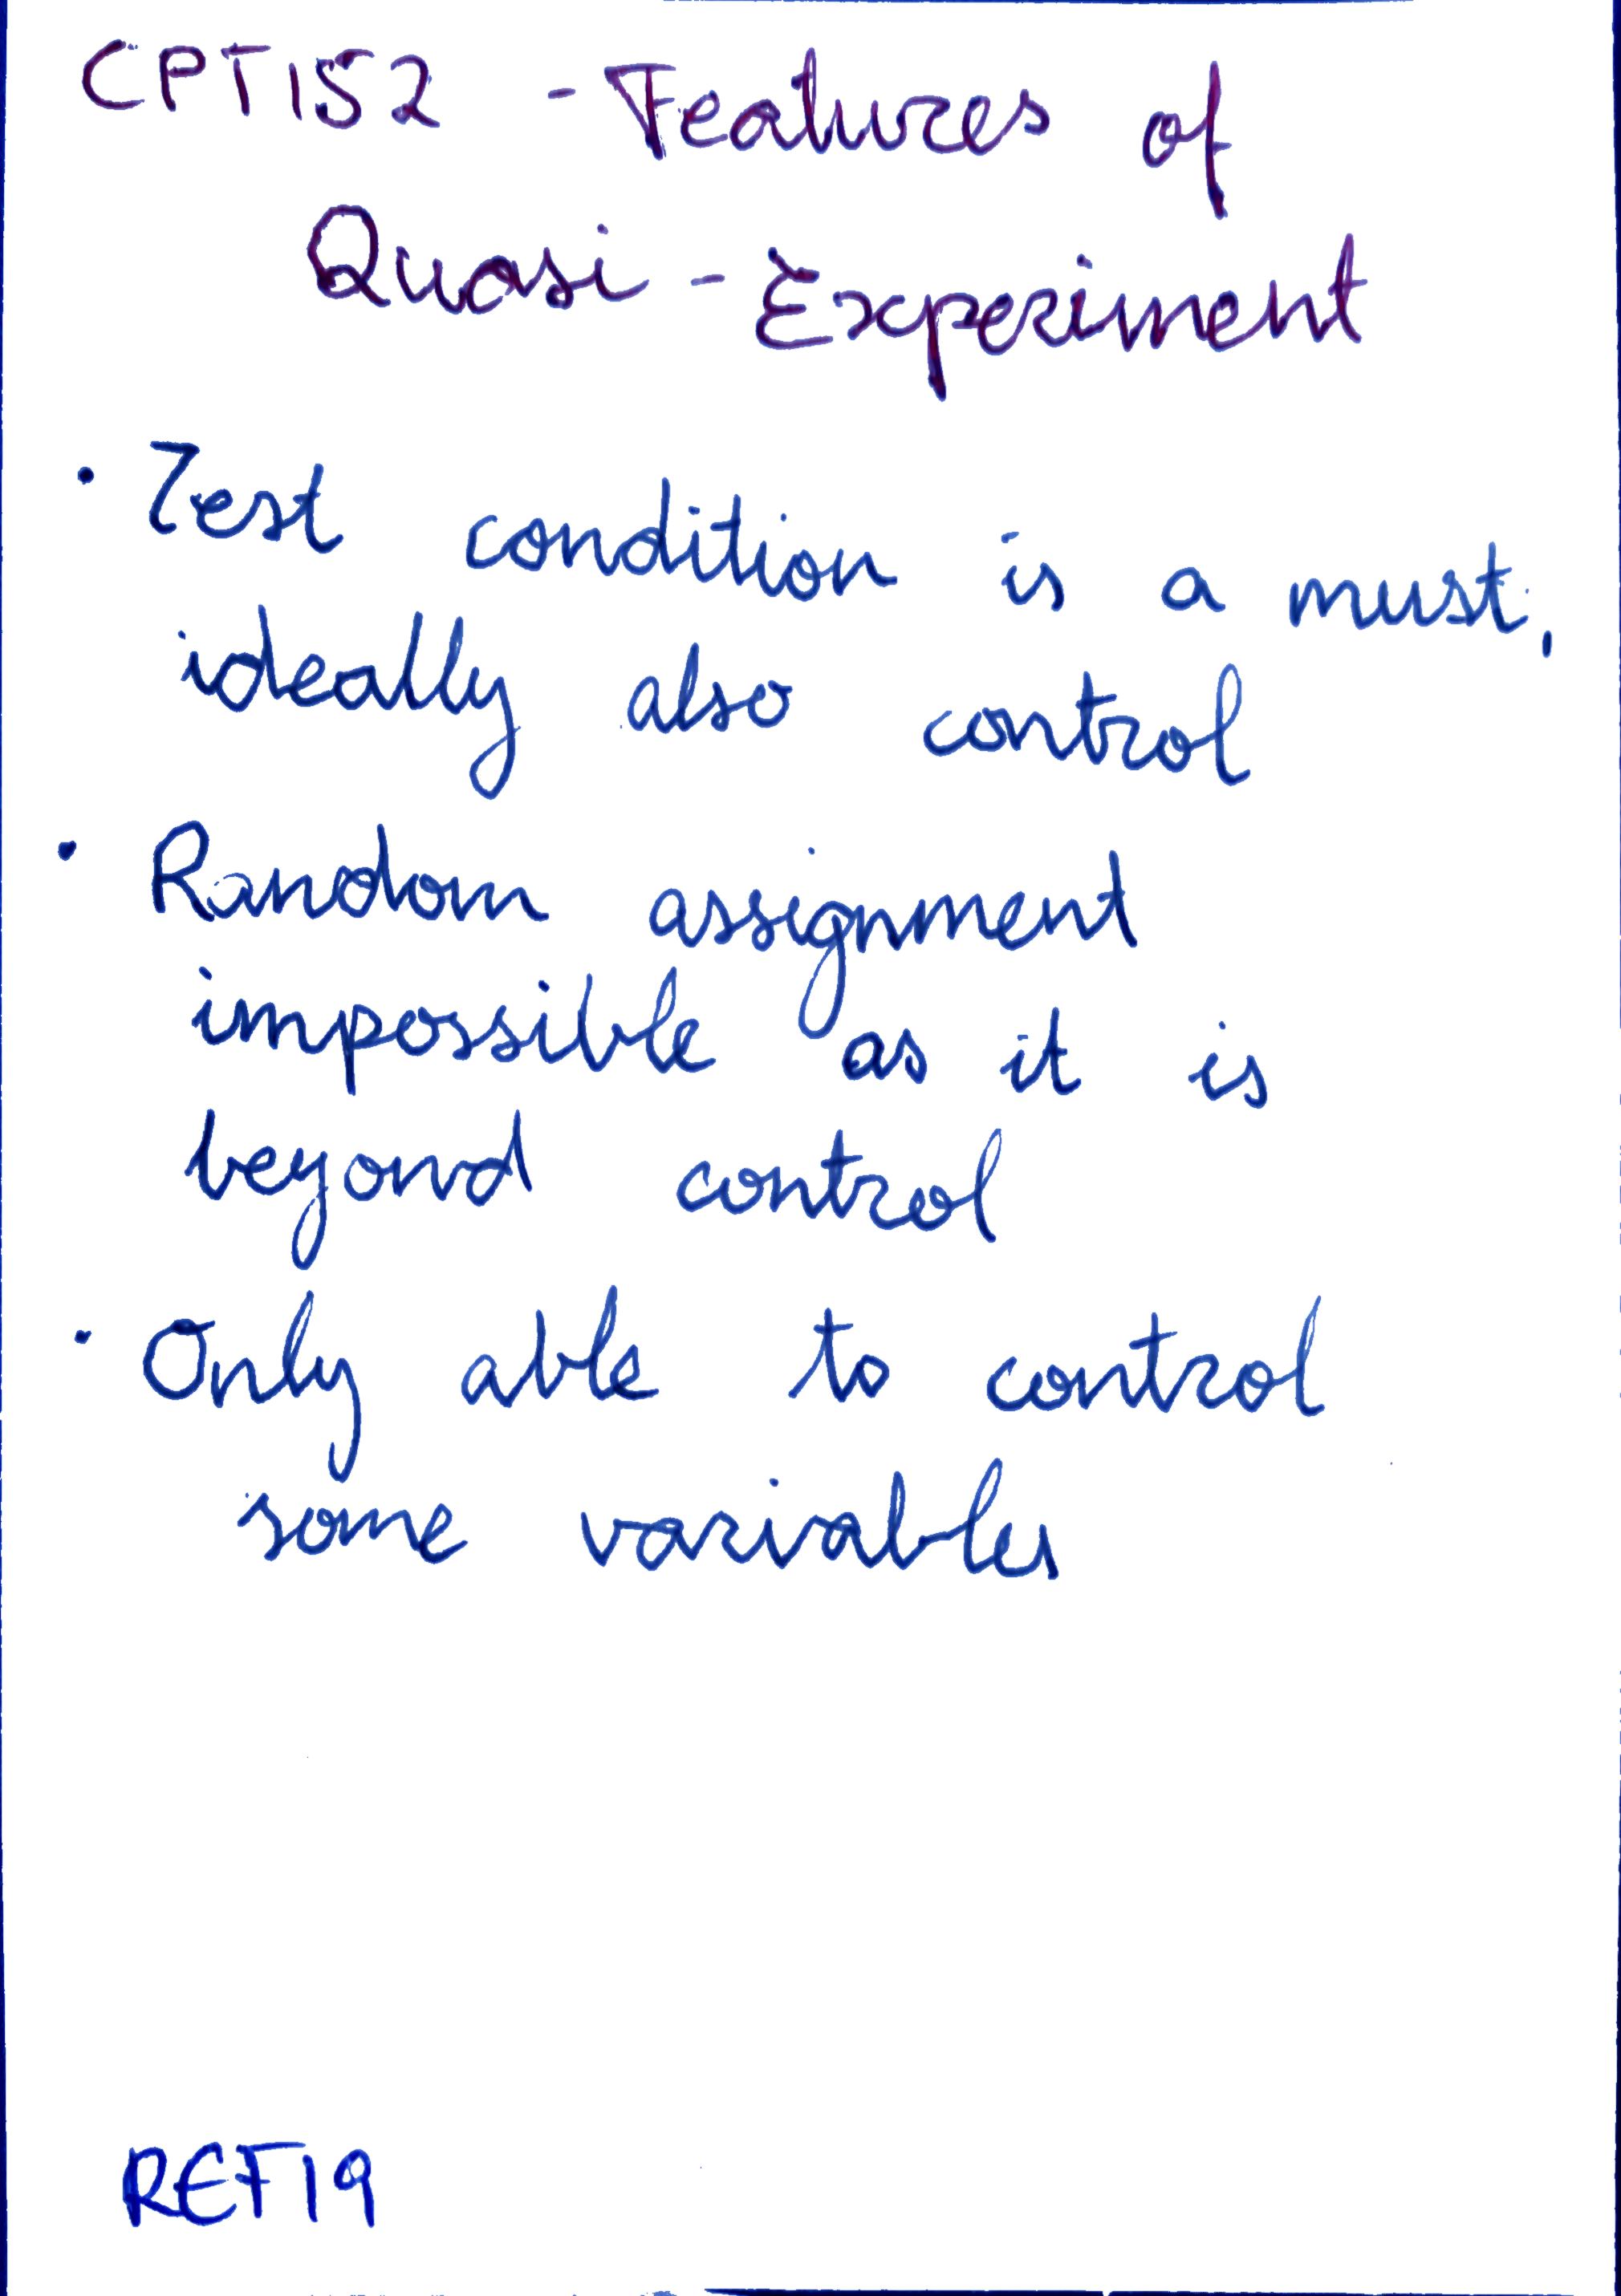 CPT152 - Features of
Quasi - Experiment
· Test condition is a must,
ideally also control
· Random assignment
impossible as it is
beyond control
· Only able to control
some variables
REF19